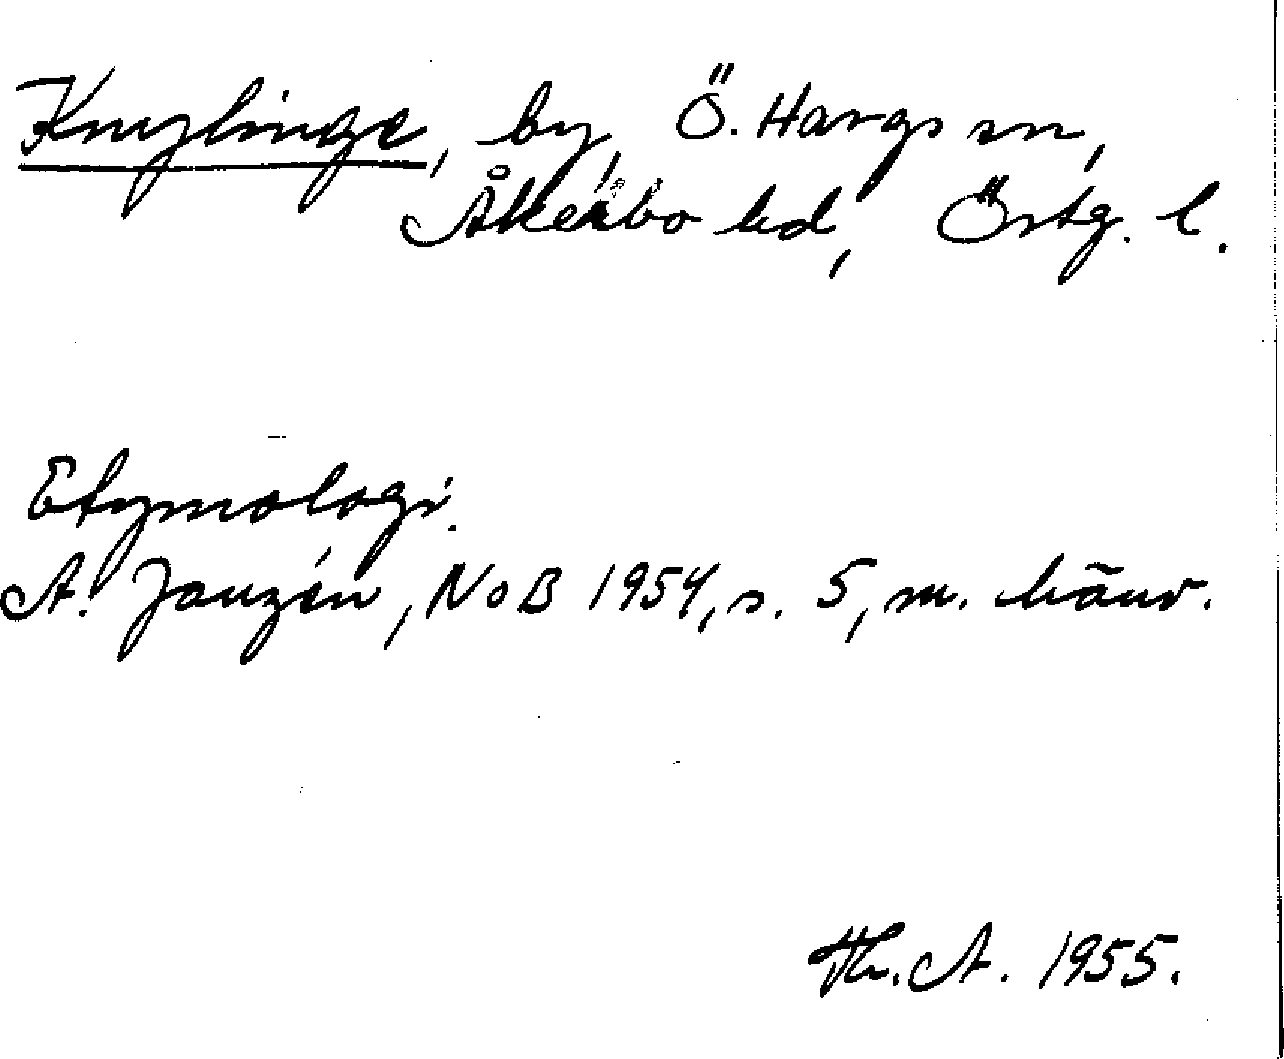 Knylinge, by, Ö. Hargs sn,
Åkerbo hd, Östg. l.
Etymologi.
A. Janzén, NoB 1954, s. 5, m. hänv.
Th. A. 1955.